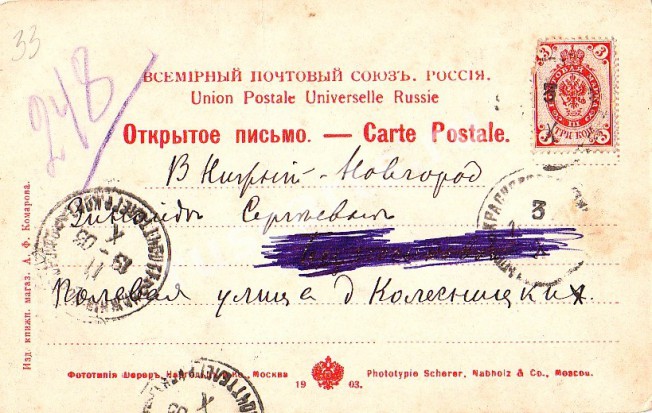 33
248
ВСЕМІРНЫЙ ПОЧТОВЫЙ СОЮЗЪ. РОССІЯ.
Union Postale Universelle Russie
Открытое письмо. — Carte Postale.
3 3
ПОЧТОВАЯ МАРКА
ТРИ КОП.
3 3
В Нижный-Новгород
Сергѣевнѣ
3
Полевая улица д Колесницких.
Изд. книжн. магаз. А. Ф. Комарова.
Фототипія Шереръ, Набгольцъ и Ко., Москва
1903.
Phototypie Scherer, Nabholz & Co., Moscou.